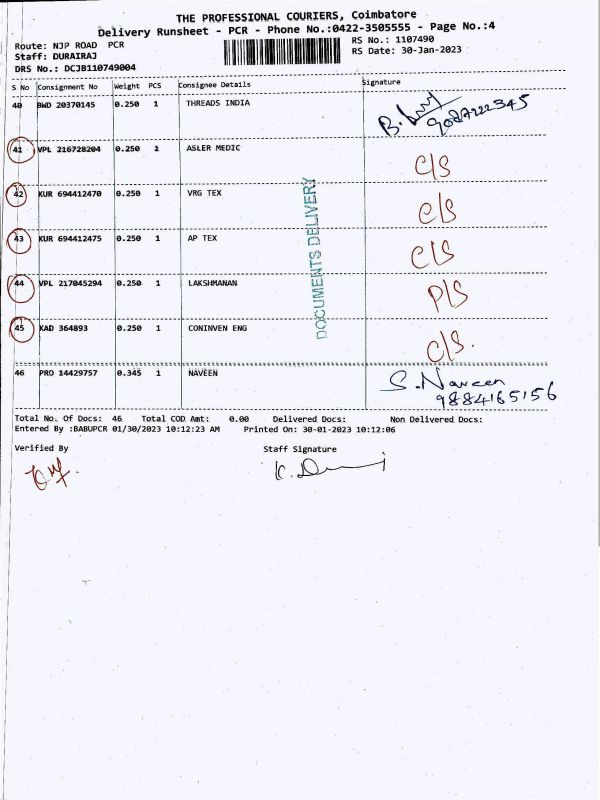 THE PROFESSIONAL COURIERS, Coimbatore
Delivery Runsheet - PCR - Phone No.:0422-3505555 - Page No.:4
Route: NJP ROAD PCR
RS No.: 1107490
Staff: DURAIRAJ
RS Date: 30-Jan-2023
DRS No.: DCJB110749004
S No Consignment No Weight PCS Consignee Details Signature
40 BWD 20370145 0.250 1 THREADS INDIA
41 VPL 216728204 0.250 1 ASLER MEDIC C/S
42 KUR 694412470 0.250 1 VRG TEX C/S
43 KUR 694412475 0.250 1 AP TEX C/S
44 VPL 217045294 0.250 1 LAKSHMANAN P/S
45 KAD 364893 0.250 1 CONINVEN ENG C/S.
46 PRO 14429757 0.345 1 NAVEEN S. Naveen
9884165156
DOCUMENTS DELIVERY
Total No. Of Docs: 46 Total COD Amt: 0.00 Delivered Docs: Non Delivered Docs:
Entered By :BABUPCR 01/30/2023 10:12:23 AM Printed On: 30-01-2023 10:12:06
Verified By Staff Signature